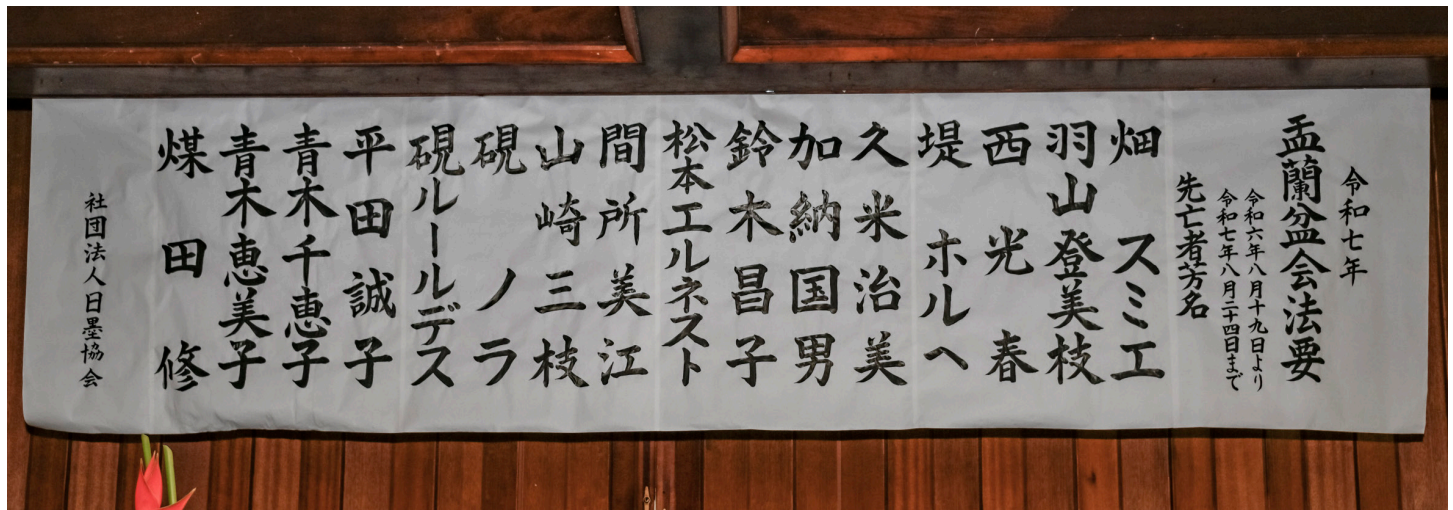 令和七年
盂蘭盆会法要
令和六年八月十九日より
令和七年八月二十四日まで
先亡者芳名
畑スミエ
羽山登美枝
西光春
堤ホルヘ
久米治美
加納国男
鈴木昌子
松本エルネスト
間所美江
山崎三枝
硯ノラ
硯ルールデス
平田誠子
青木千恵子
青木恵美子
煤田修
社団法人日墨協会